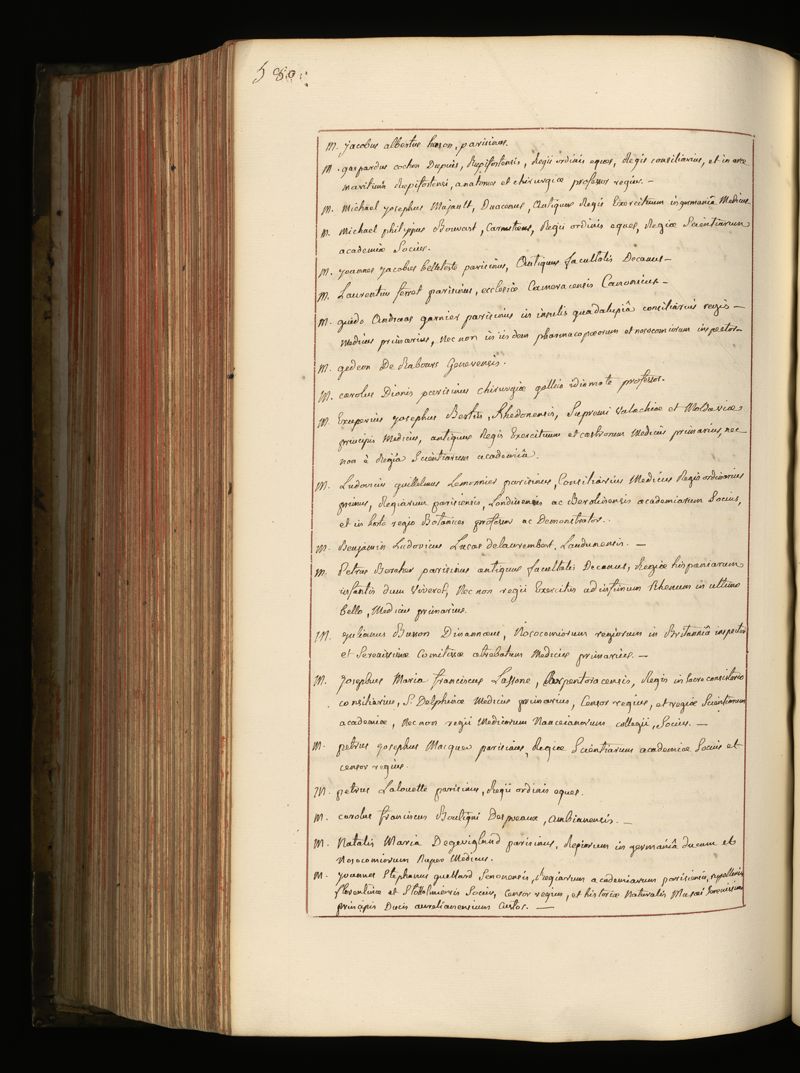 580.
M. Jacobus albertus hazon, parisinus.
M. gaspardus cochon Dupuis, Rupifortensis, Regii ordinis eques, Regis consiliarius, et in arce
maritimâ Rupifortensi, anatomes et chirurgiæ professor regius. —
M. Michael Josephus Majault, Duacenus, Antiquus Regis Exercituum in germaniâ Medicus
M. Michael philippus Bouvart, Carnutæus, Regii ordinis eques, Regiæ Scientiarum
academiæ Socius.
M. Joannes Jacobus belleteste parisinus, Antiquus facultatis Decanus —
M. Laurentius ferret parisinus, ecclesiæ Cameracensis Canonicus —
M. guido Andræas garnier parisinus in insulis guadalupiâ consiliarius regis —
Medicus primarius, Nec non in iisdem pharmacopæorum et nosocomiorum inspector —
M. gedeon De Rabours Genevensis.
M. carolus Dionis parisinus chirurgiæ gallico idiomate professor.
M. Exuperius Josephus Bertin, Rhedonensis, Supremi Valachiæ et Moldaviæ
principis Medicus, antiquus Regis Exercituum et castrorum Medicus primarius, nec
non è Regia Scientiarum academiâ.
M. Ludovicus guillelmus Lemonnier parisinus, Consiliarius Medicus Regis ordinarius
primus, Regiarum parisiensis, Londinensis ac Berolinensis academiarum Socius,
et in horto regio Botanices professor ac Demonstrator.
M. Benjamin Ludovicus Lucas delaurembert, Laudunensis. —
M. Petrus Bercher parisinus antiquus facultatis Decanus, Regiæ hispaniarum
infantis dum Viveret, Nec non regii Exercitus ad infimum Rhenum in ultimo
bello, Medicus primarius.
M. Julianus Busson Dinannæus, Nosocomiorum regiorum in Britanniâ inspector
et Serenissimæ Comitissæ atrebatum Medicus primarius. —
M. Josephus Maria franciscus Lassone, Carpentoracensis, Regis in sacro consistorio
consiliarius, S. Delphinæ Medicus primarius, Censor regius, et regiæ Scientiarum
academiæ, Nec non regii Medicorum Nanceianorum collegii, Socius. —
M. petrus Josephus Macquer parisinus, Regiæ Scientiarum academiæ Socius et
censor regius.
M. petrus Lalouette parisinus, Regii ordinis eques.
M. carolus franciscus Boutigni Despreaux, ambianensis. —
M. Natalis Maria Degevigland parisinus, Regiorum in germaniâ ducum et
Nosocomiorum Nuper Medicus.
M. Joannes Stephanus guettard Senonensis, Regiarum academiarum parisiensis, rupellensis
florentinæ et Stokolmiensis Socius, Censor regius, et historiæ Naturalis Musæi Serenissimi
principis Ducis aurelianensium Custos. —